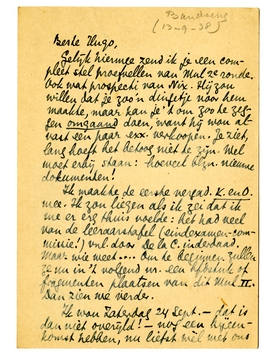 Bandoeng
(13-9-38)
Beste Hugo,
Gelijk hiermee zend ik je een com-
pleet stel proefvellen van Mul zonde.
Ook wat prospecti van Nix. Hij zou
willen dat je zoo'n dinfetje voor hem
maakte, maar kan je 't om zoo te zeg-
gen omgaand doen, want hij wou al-
vast een paar exx. verkoopen. Je ziet,
lang hoeft het betoog niet te zijn. Wel
moet erbij staan: hoeveel blzn. nieuwe
documenten!
Ik maakte de eerste vergad. K. en O.
mee. Ik zou liegen als ik zei dat ik
me er erg thuis voelde: het had veel
van de leeraarstafel (eindexamen-com-
missie!) vnl. door De la C. inderdaad.
Maar wie weet.... Om te beginnen zullen
ze nu in 't volgend nr. een
fragmenten plaatsen van dit Mul II.
Dan zien we verder.
Ik wou Zaterdag 24 Sept. — dat is
dan niet overijld! — nog een bijeen-
komst hebben, nu liefst wel met ons